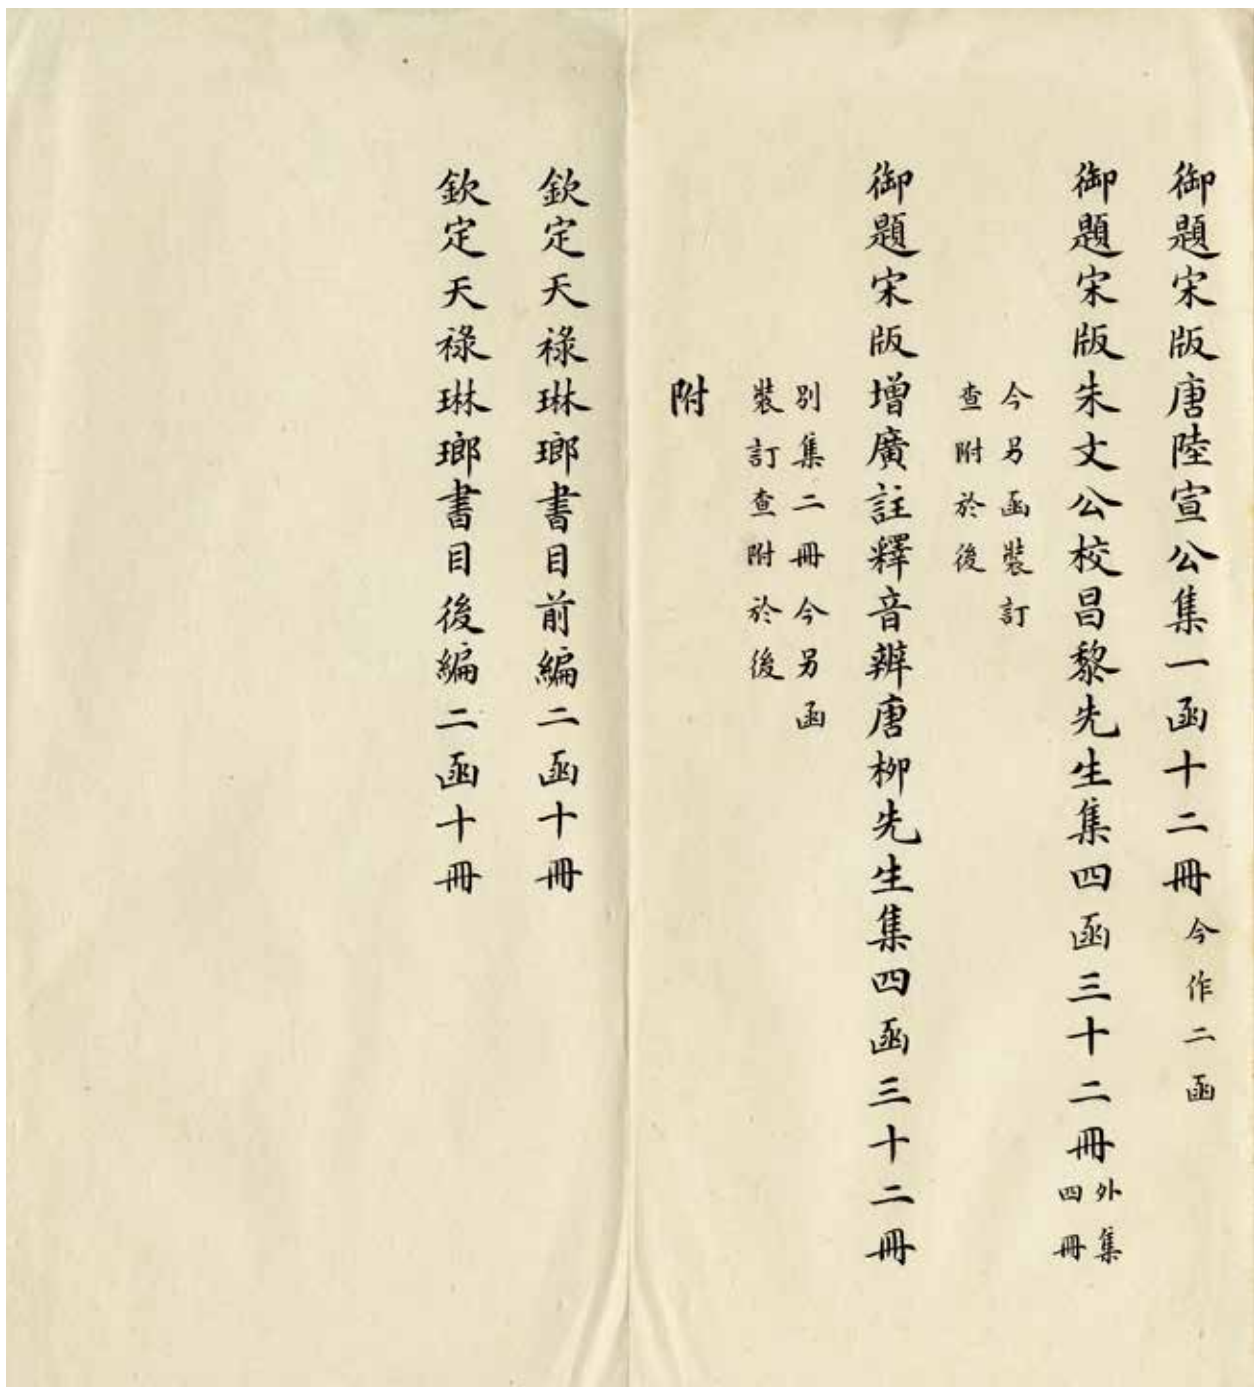 御題宋版唐陸宣公集一函十二冊今作二函
御題宋版朱文公校昌黎先生集四函三十二冊外集
四冊
今另函裝訂
查附於後
御題宋版增廣註釋音辨唐柳先生集四函三十二冊
別集二冊今另函
裝訂查附於後
附
欽定天祿琳瑯書目前編二函十冊
欽定天祿琳瑯書目後編二函十冊